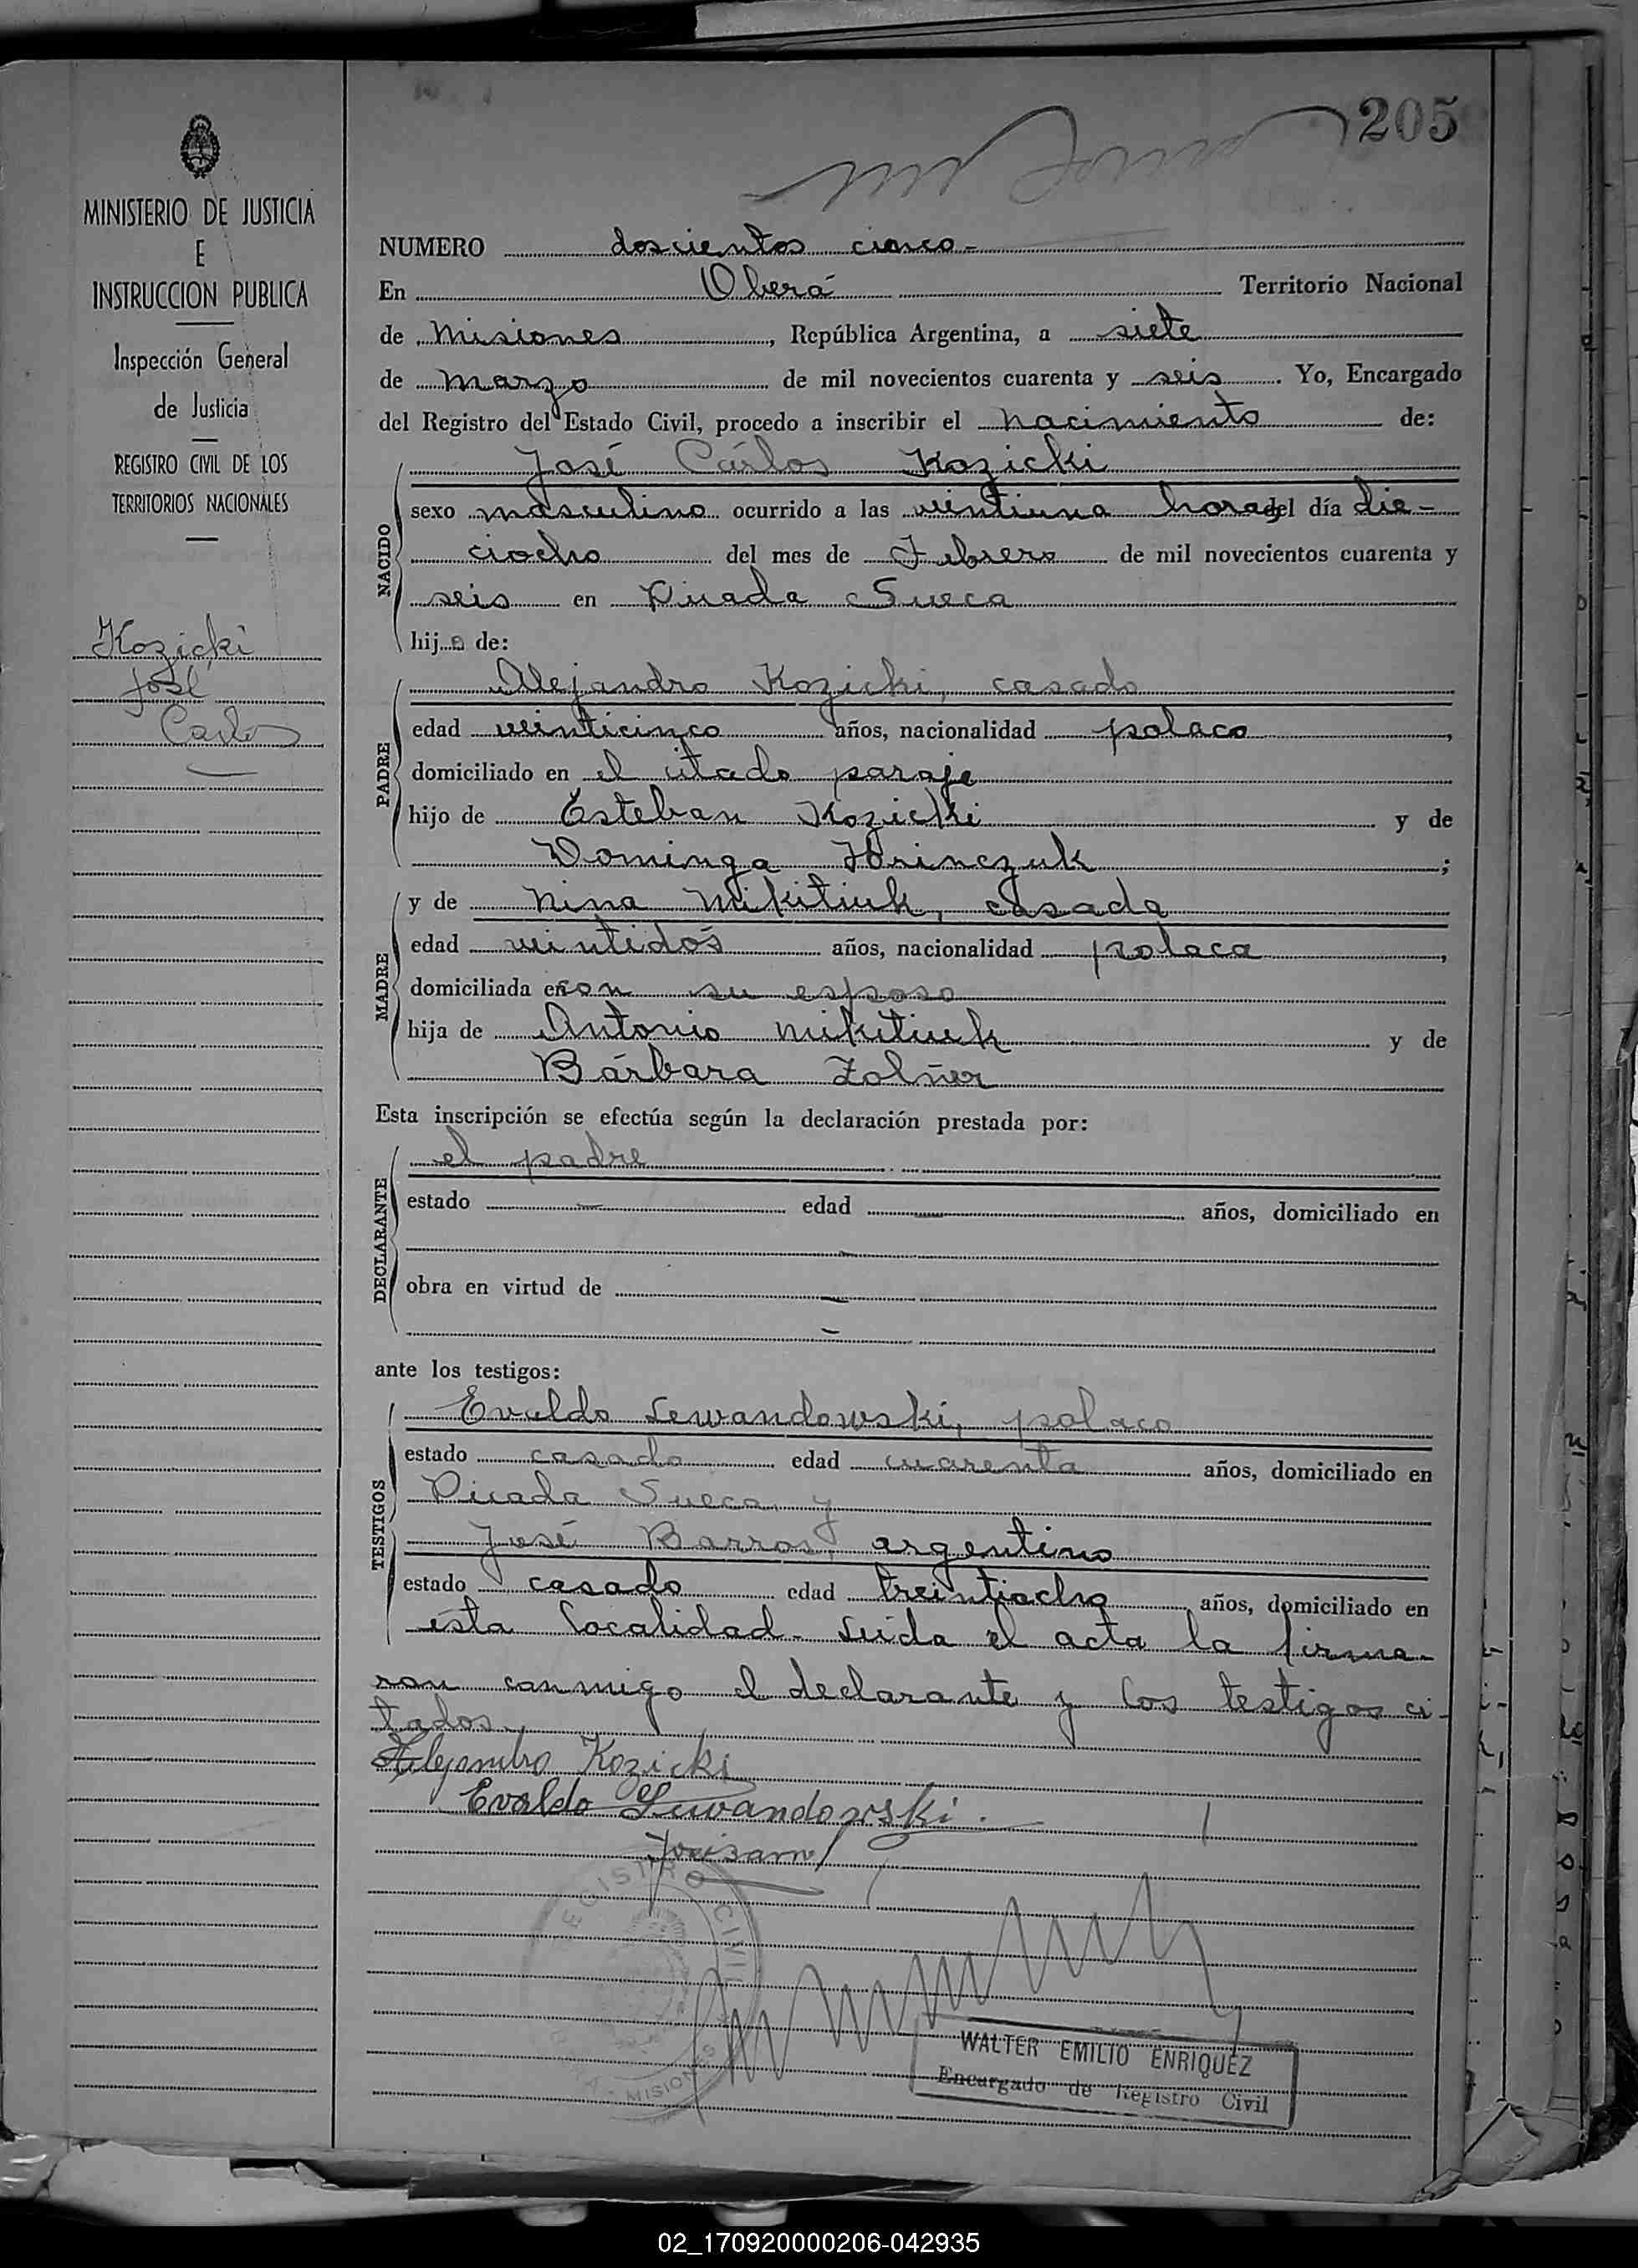 205
MINISTERIO DE JUSTICIA
E
INSTRUCCION PUBLICA
Inspección General
de Justicia
REGISTRO CIVIL DE LOS
TERRITORIOS NACIONALES
Kozicki
José
Carlos
NUMERO doscientos cinco-
En Oberá Territorio Nacional
de Misiones, República Argentina, a siete
de marzo de mil novecientos cuarenta y seis. Yo, Encargado
del Registro del Estado Civil, procedo a inscribir el nacimiento de:
NACIDO
José Cárlos Kozicki
sexo masculino ocurrido a las veintiuna horas del día die-
ciocho del mes de Febrero de mil novecientos cuarenta y
seis en Picada Sueca
hijo de:
PADRE
Alejandro Kozicki, casado
edad veinticinco años, nacionalidad polaco,
domiciliado en el citado paraje
hijo de Esteban Kozicki y de
Dominga Hrinczuk;
MADRE
y de Nina Mikitiuk, casada
edad veintidós años, nacionalidad polaca,
domiciliada en con su esposo
hija de Antonio Mikitiuk y de
Bárbara Zolñer
Esta inscripción se efectúa según la declaración prestada por:
DECLARANTE
el padre
estado — edad — años, domiciliado en
—
obra en virtud de —
—
ante los testigos:
TESTIGOS
Evaldo Lewandowski, polaco
estado casado edad cuarenta años, domiciliado en
Picada Sueca, y
José Barros, argentino
estado casado edad treintiocho años, domiciliado en
esta localidad- Leída el acta la firma-
ron conmigo el declarante y los testigos ci-
tados.
Alejandro Kozicki
Evaldo Lewandowski.
REGISTRO CIVIL
MISIONES
WALTER EMILIO ENRIQUEZ
Encargado de Registro Civil
02_170920000206-042935